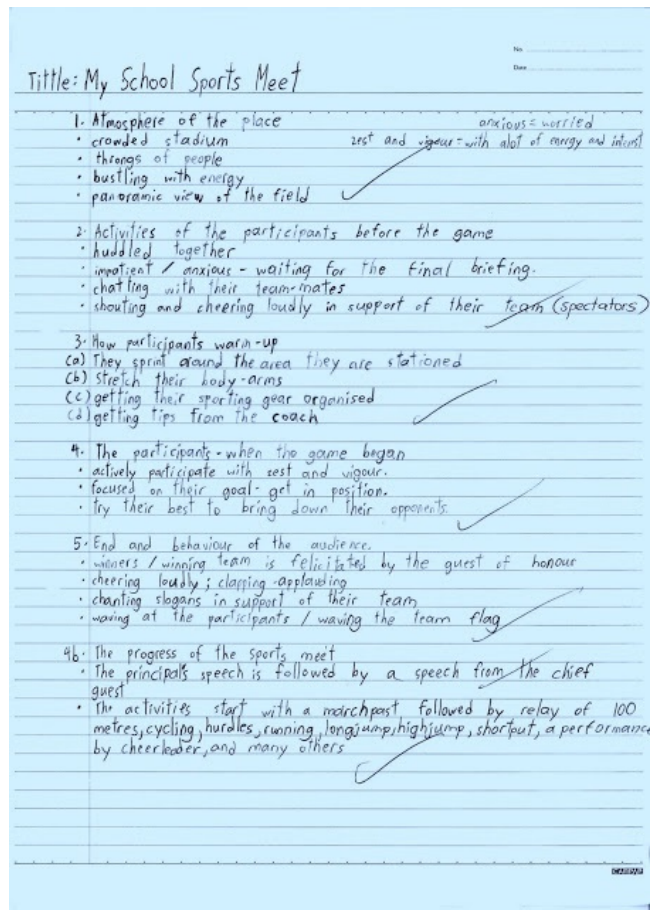 No.
Date
Tittle: My School Sports Meet
1. Atmosphere of the place
anxious = worried
• crowded stadium
zest and vigour = with alot of energy and interest
• throngs of people
• bustling with energy
• panoramic view of the field
2. Activities of the participants before the game
• huddled together
• impatient / anxious - waiting for the final briefing.
• chatting with their team-mates
• shouting and cheering loudly in support of their team (spectators)
3. How participants warm-up
(a) They sprint around the area they are stationed
(b) stretch their body-arms
(c) getting their sporting gear organised
(d) getting tips from the coach
4. The participants - when the game began
• actively participate with zest and vigour.
• focused on their goal - get in position.
• try their best to bring down their opponents.
5. End and behaviour of the audience.
• winners / winning team is felicitated by the guest of honour
• cheering loudly ; clapping -applauding
• chanting slogans in support of their team
• waving at the participants / waving the team flag
4b. The progress of the sports meet
• The principal's speech is followed by a speech from the chief
guest
• The activities start with a marchpast followed by relay of 100
metres, cycling, hurdles, running, longjump, highjump, shortput, a performance
by cheerleader, and many others